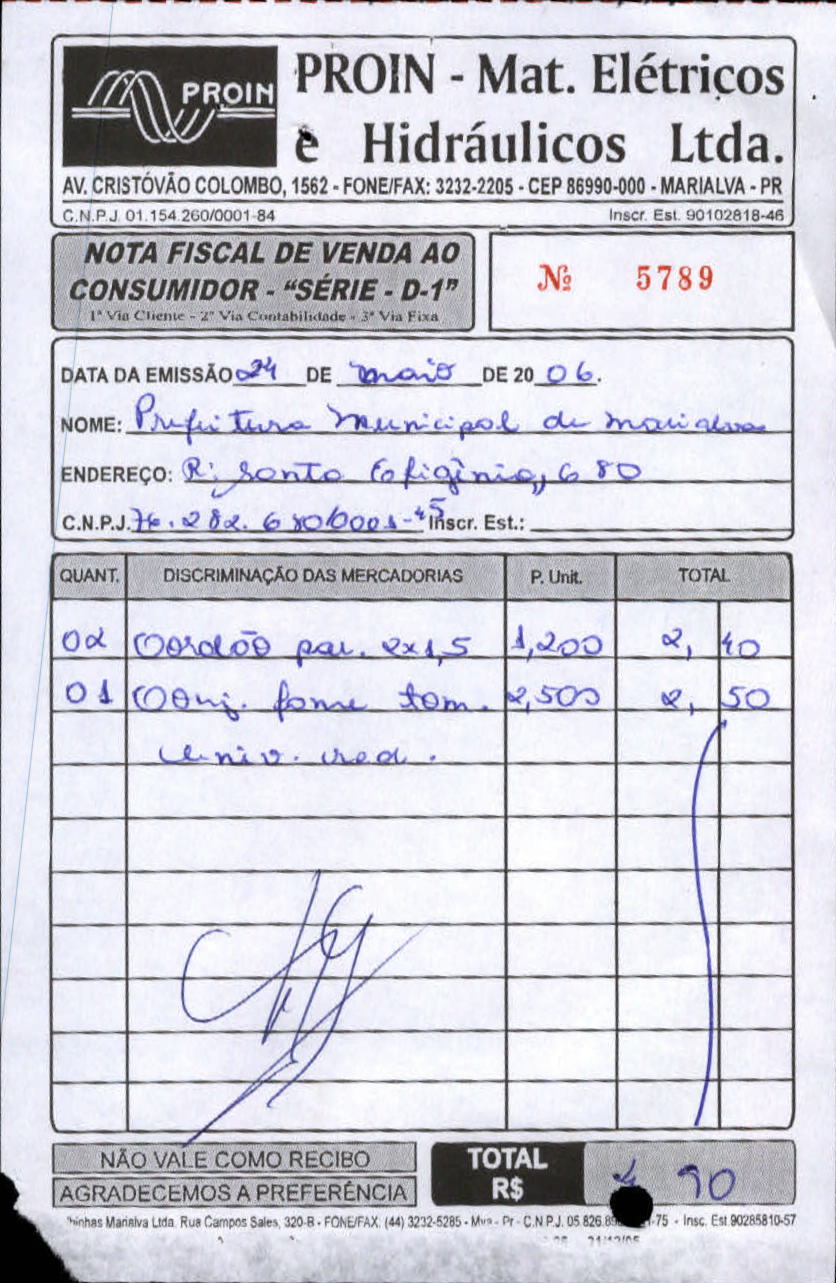 PROIN
PROIN - Mat. Elétricos
e Hidráulicos Ltda.
AV. CRISTÓVÃO COLOMBO, 1562 - FONE/FAX: 3232-2205 - CEP 86990-000 - MARIALVA - PR
C.N.P.J. 01.154.260/0001-84 Inscr. Est. 90102818-46
NOTA FISCAL DE VENDA AO
CONSUMIDOR - “SÉRIE - D-1”
1ª Via Cliente - 2ª Via Contabilidade - 3ª Via Fixa
Nº 5789
DATA DA EMISSÃO 24 DE maio DE 20 06.
NOME: Prefeitura Municipal de Marialva
ENDEREÇO: R: Santa Efigênia, 680
C.N.P.J. 76.282.680/0001-45 Inscr. Est.:
QUANT. DISCRIMINAÇÃO DAS MERCADORIAS P. Unit. TOTAL
02 Cordão par. 2x1,5 1,200 2, 40
01 Conj. fome tom. 2,500 2, 50
Univ. red.
NÃO VALE COMO RECIBO
AGRADECEMOS A PREFERÊNCIA
TOTAL
R$ 4 90
Marialva Ltda. Rua Campos Sales, 320-B - FONE/FAX. (44) 3232-5285 - Mva - Pr - C.N.P.J. 05.826. -75 - Insc. Est.90285810-57